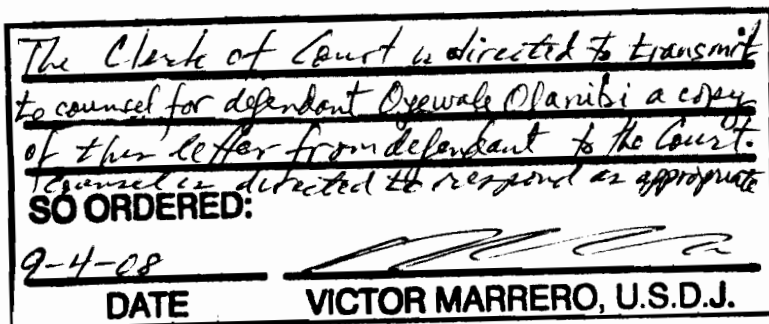 The Clerk of Court is directed to transmit
to counsel for defendant Oyewale Olanibi a copy
of this letter from defendant to the Court.
Counsel is directed to respond as appropriate
SO ORDERED:
9-4-08
DATE VICTOR MARRERO, U.S.D.J.